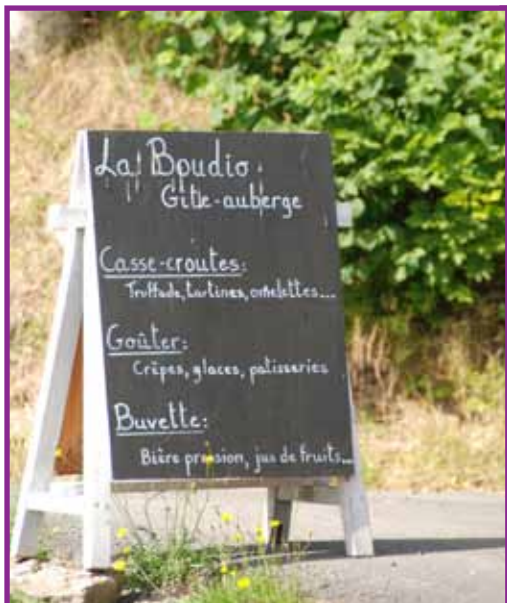 La Boudio
Gîte-auberge
Casse-croutes:
Truffade, tartines, omelettes...
Goûter:
Crêpes, glaces, patisseries
Buvette:
Bière pression, jus de fruits...